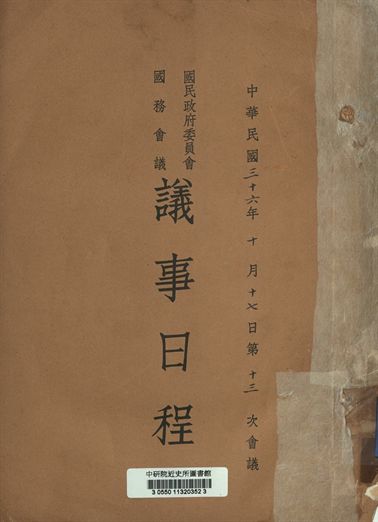 中華民國三十六年十月十七日第十三次會議
國民政府委員會
國務會議
議事日程
中研院近史所圖書館
3 0550 11320352 3